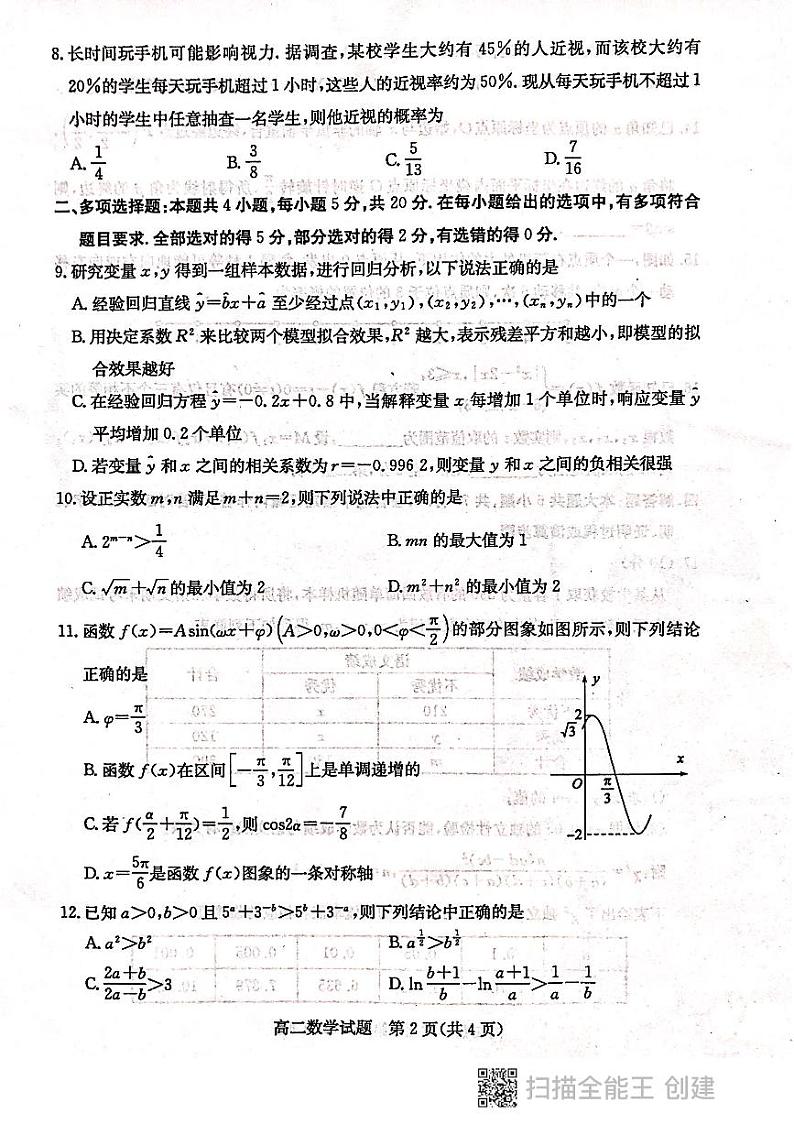 8.长时间玩手机可能影响视力.据调查,某校学生大约有45%的人近视,而该校大约有
20%的学生每天玩手机超过1小时,这些人的近视率约为50%.现从每天玩手机不超过1
小时的学生中任意抽查一名学生,则他近视的概率为
A. 1/4 B. 3/8 C. 5/13 D. 7/16
二、多项选择题:本题共4小题,每小题5分,共20分.在每小题给出的选项中,有多项符合
题目要求.全部选对的得5分,部分选对的得2分,有选错的得0分.
9.研究变量x,y得到一组样本数据,进行回归分析,以下说法正确的是
A.经验回归直线ŷ=b̂x+â至少经过点(x₁,y₁),(x₂,y₂),…,(xₙ,yₙ)中的一个
B.用决定系数R²来比较两个模型拟合效果,R²越大,表示残差平方和越小,即模型的拟
合效果越好
C.在经验回归方程ŷ=-0.2x+0.8中,当解释变量x每增加1个单位时,响应变量y
平均增加0.2个单位
D.若变量ŷ和x之间的相关系数为r=-0.996 2,则变量y和x之间的负相关很强
10.设正实数m,n满足m+n=2,则下列说法中正确的是
A. 2^(m-n)>1/4 B. mn的最大值为1
C. √m+√n的最小值为2 D. m²+n²的最小值为2
11.函数f(x)=Asin(ωx+φ)(A>0,ω>0,0<φ<π/2)的部分图象如图所示,则下列结论
正确的是
A. φ=π/3
B.函数f(x)在区间[-π/3,π/12]上是单调递增的
C.若f(α/2+π/12)=1/2,则cos2α=-7/8
D. x=5π/6是函数f(x)图象的一条对称轴
y
2
√3
x
O
π/3
-2
12.已知a>0,b>0且5^a+3^(-b)>5^b+3^(-a),则下列结论中正确的是
A. a²>b² B. a^(1/2)>b^(1/2)
C. (2a+b)/(2a-b)>3 D. ln (b+1)/b-ln (a+1)/a>1/a-1/b
高二数学试题 第2页(共4页)
扫描全能王 创建